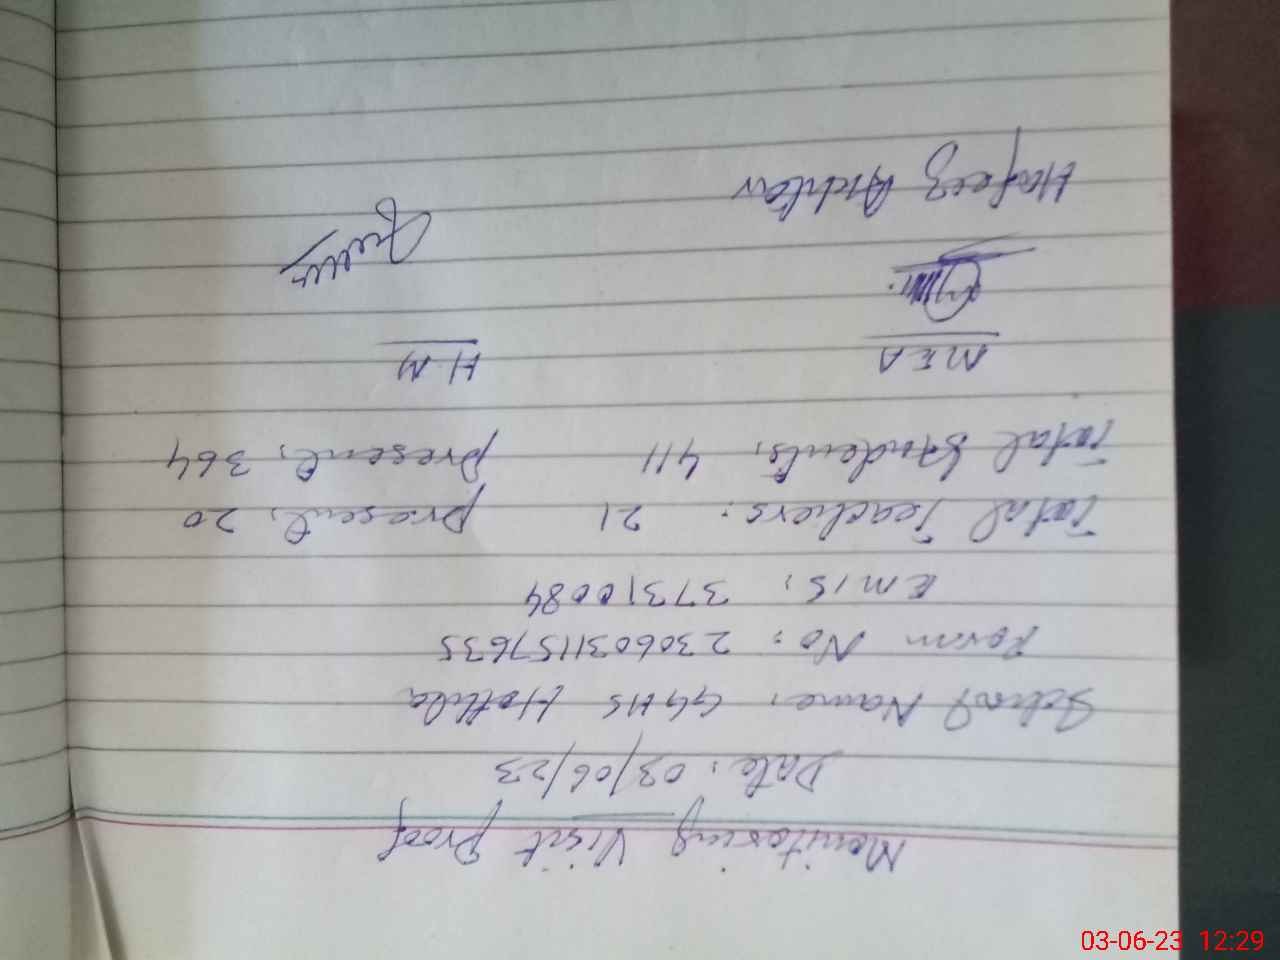 Monitoring Visit Proof
Date: 03/06/23
School Name: GGHS Hattila
Form No: 230603115 7635
EMIS: 37310084
Total Teachers: 21 present: 20
Total Students: 411 present: 364
MEA H.M
Hafeez Akhtar
03-06-23 12:29